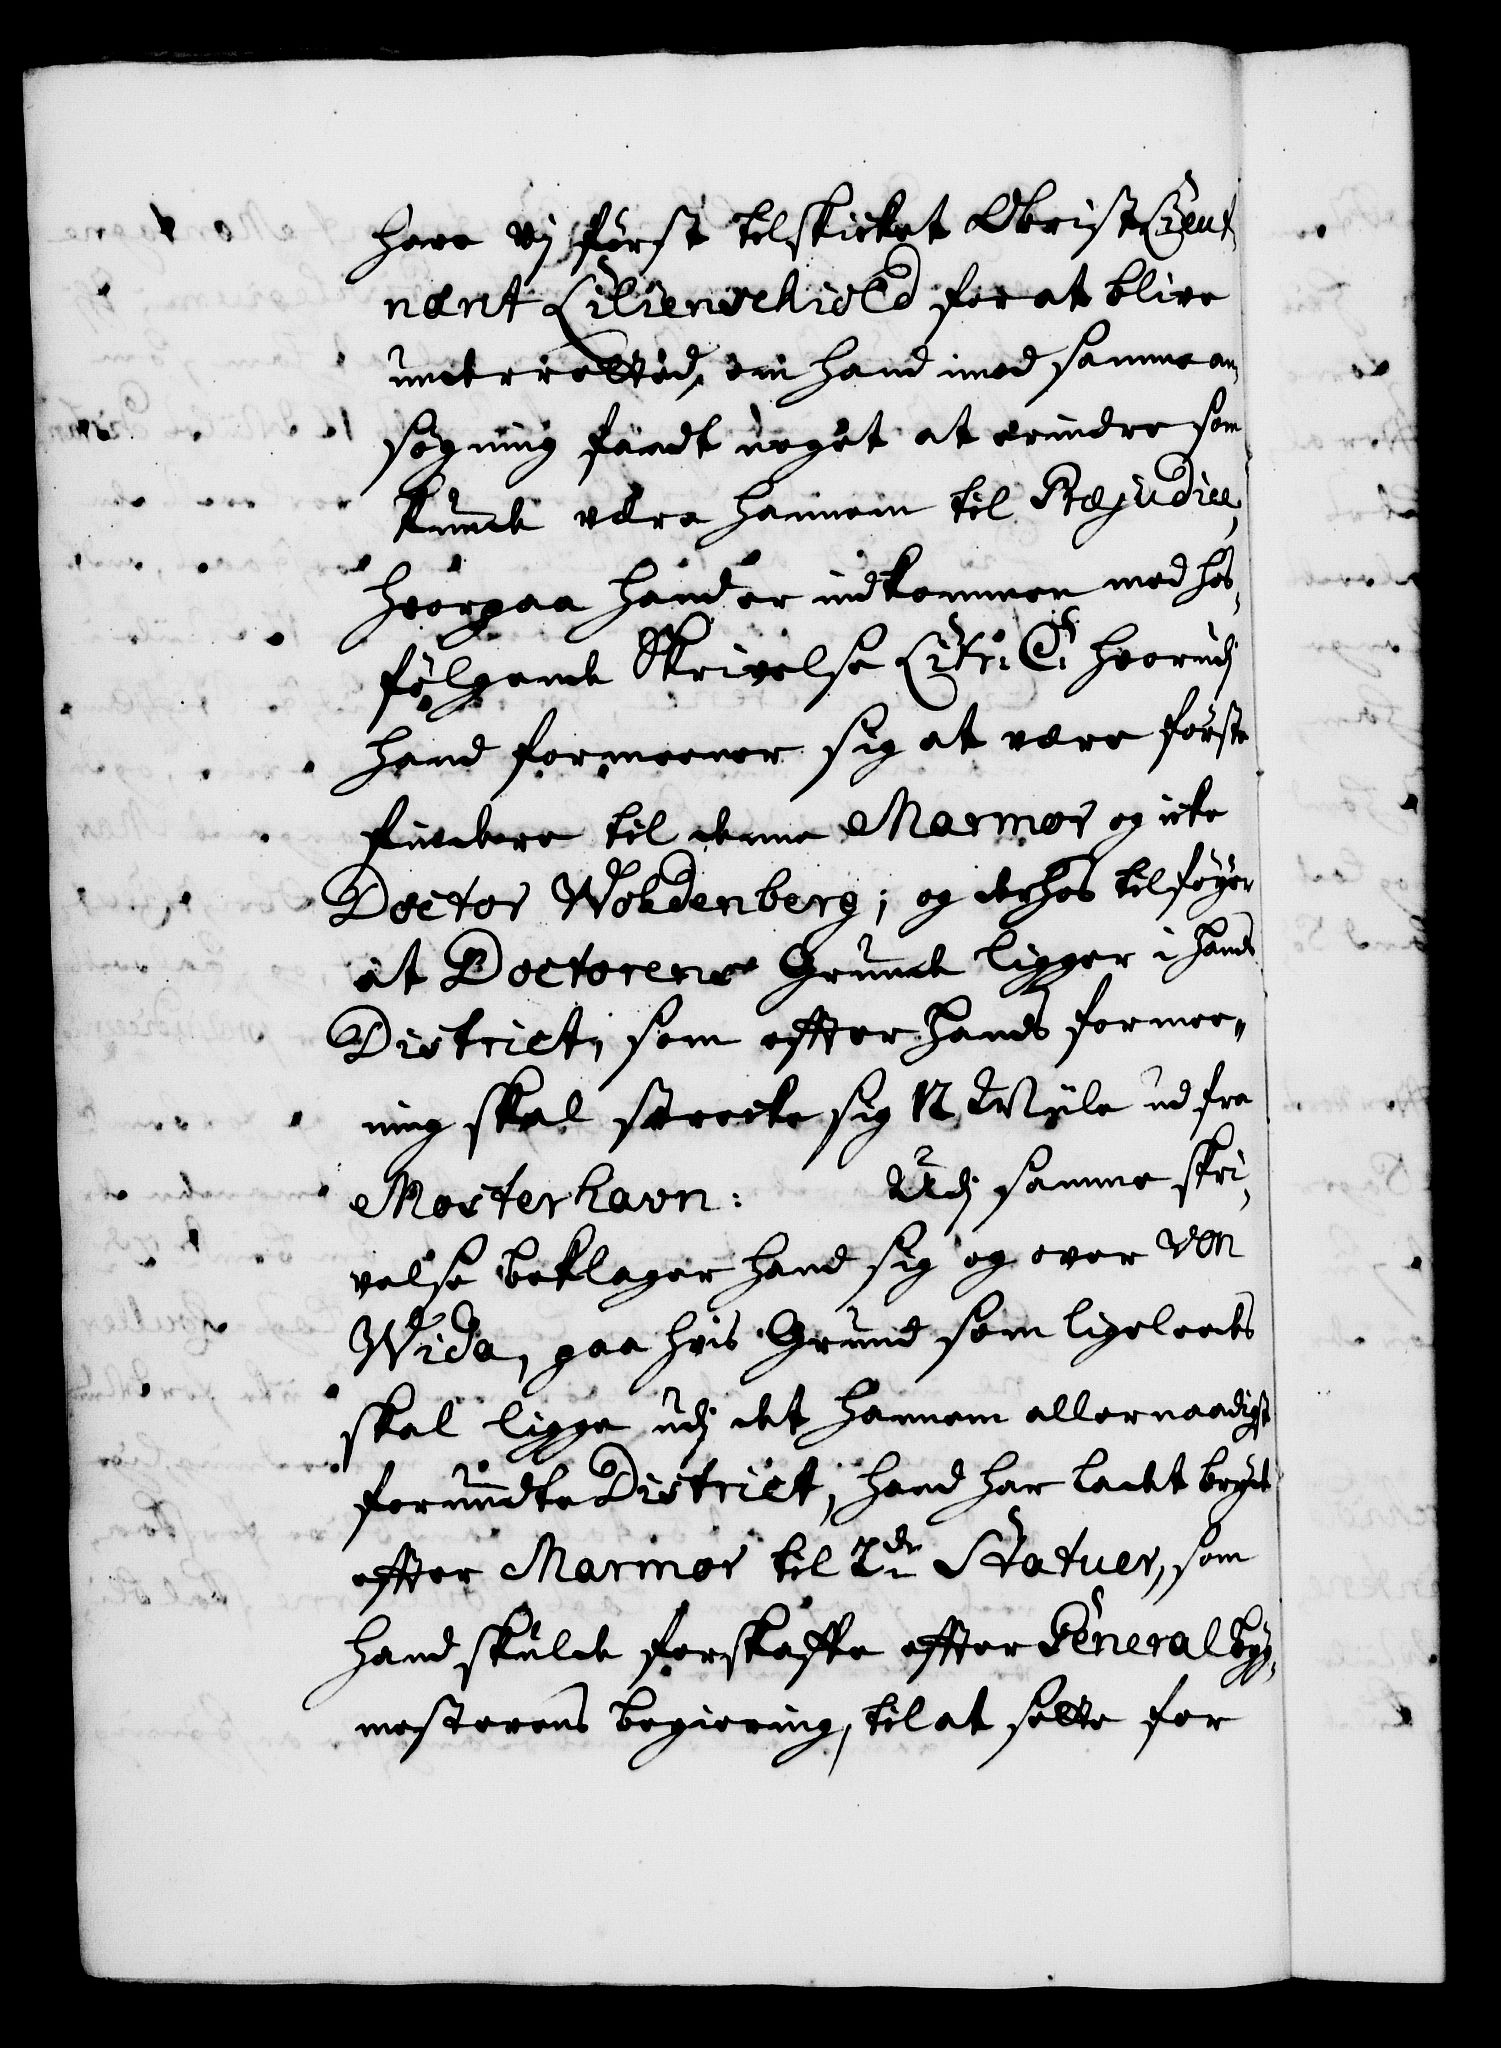 have vj først tilskicket Obrist Lieut¬
nant Lilienschiold for at blive
underretted, om hand imod samme an¬
søgning fandt noget at erindre som
kunde være hannem til Præjudice,
hvorpaa hand er indkommen med hos¬
følgende Skrivelse Litr: C: hvorudj
hand formeener sig at være første
findere til denne Marmor og icke
Doctor Woldenberg; og derhos tilføyer
at Doctorens Grunde ligger i hans
District, som effter hans formee¬
ning skal strecke sig 12 Myile ud fra
Mosterhavn: Udj samme skri¬
velse beklager hand sig og over von
Wida, paa hvis Grund som ligeleedes
skal ligge udj det hannem allernaadigst
forundte District, hand har ladet bryde
effter Marmor til 2de Statuer, som
hand skulde forskaffe effter General Byg¬
mesterens begiering, til at sette for